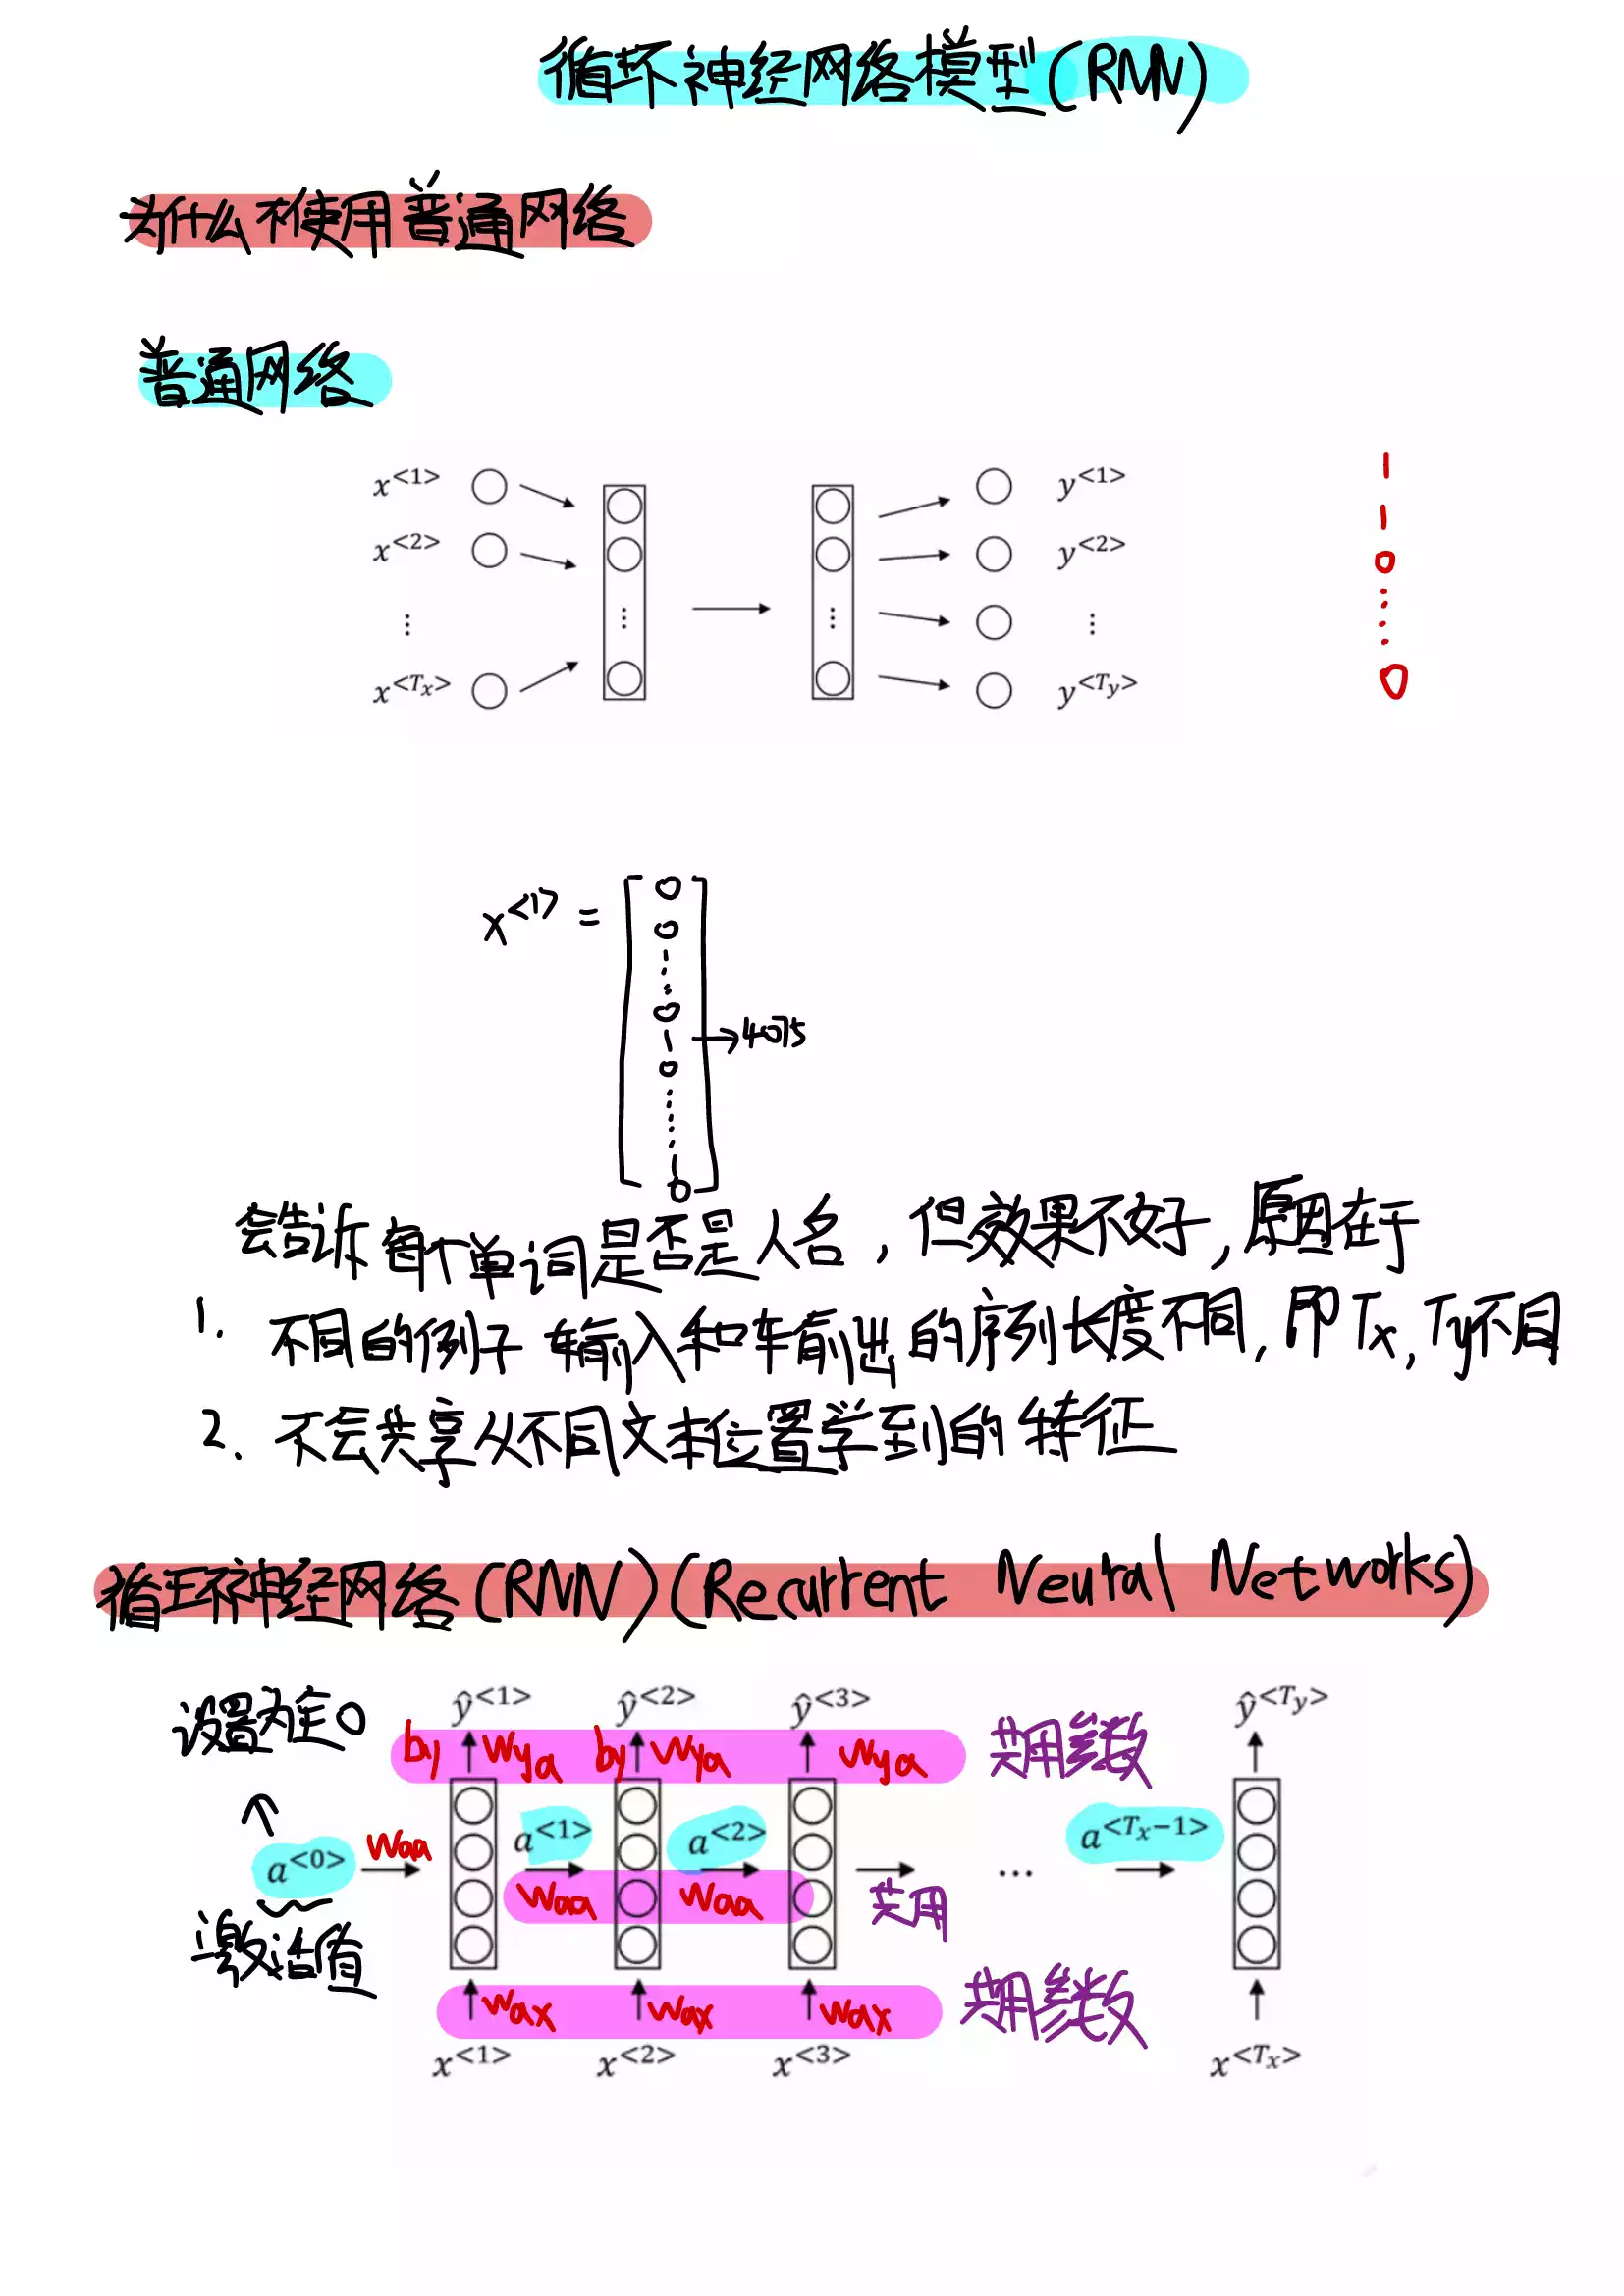 循环神经网络模型(RNN)
为什么不使用普通网络
普通网络
x<1> y<1> 1
x<2> y<2> 1
0
⋮ ⋮ ⋮ ⋮
x<Tx> y<Ty> 0
x<1> = [0 0 ⋮ 0 1 0 ⋮ 0] → 4075
会告诉每个单词是否是人名,但效果不好,原因在于
1. 不同的例子输入和输出的序列长度不同,即Tx,Ty不同
2. 不会共享从不同文本位置学到的特征
循环神经网络(RNN)(Recurrent Neural Networks)
设置为全0 ŷ<1> ŷ<2> ŷ<3> ŷ<Ty>
by Wya by Wya Wya 共用参数
a<0> Waa a<1> a<2> ... a<Tx−1>
Waa Waa 共用
激活值
Wax Wax Wax 共用参数
x<1> x<2> x<3> x<Tx>